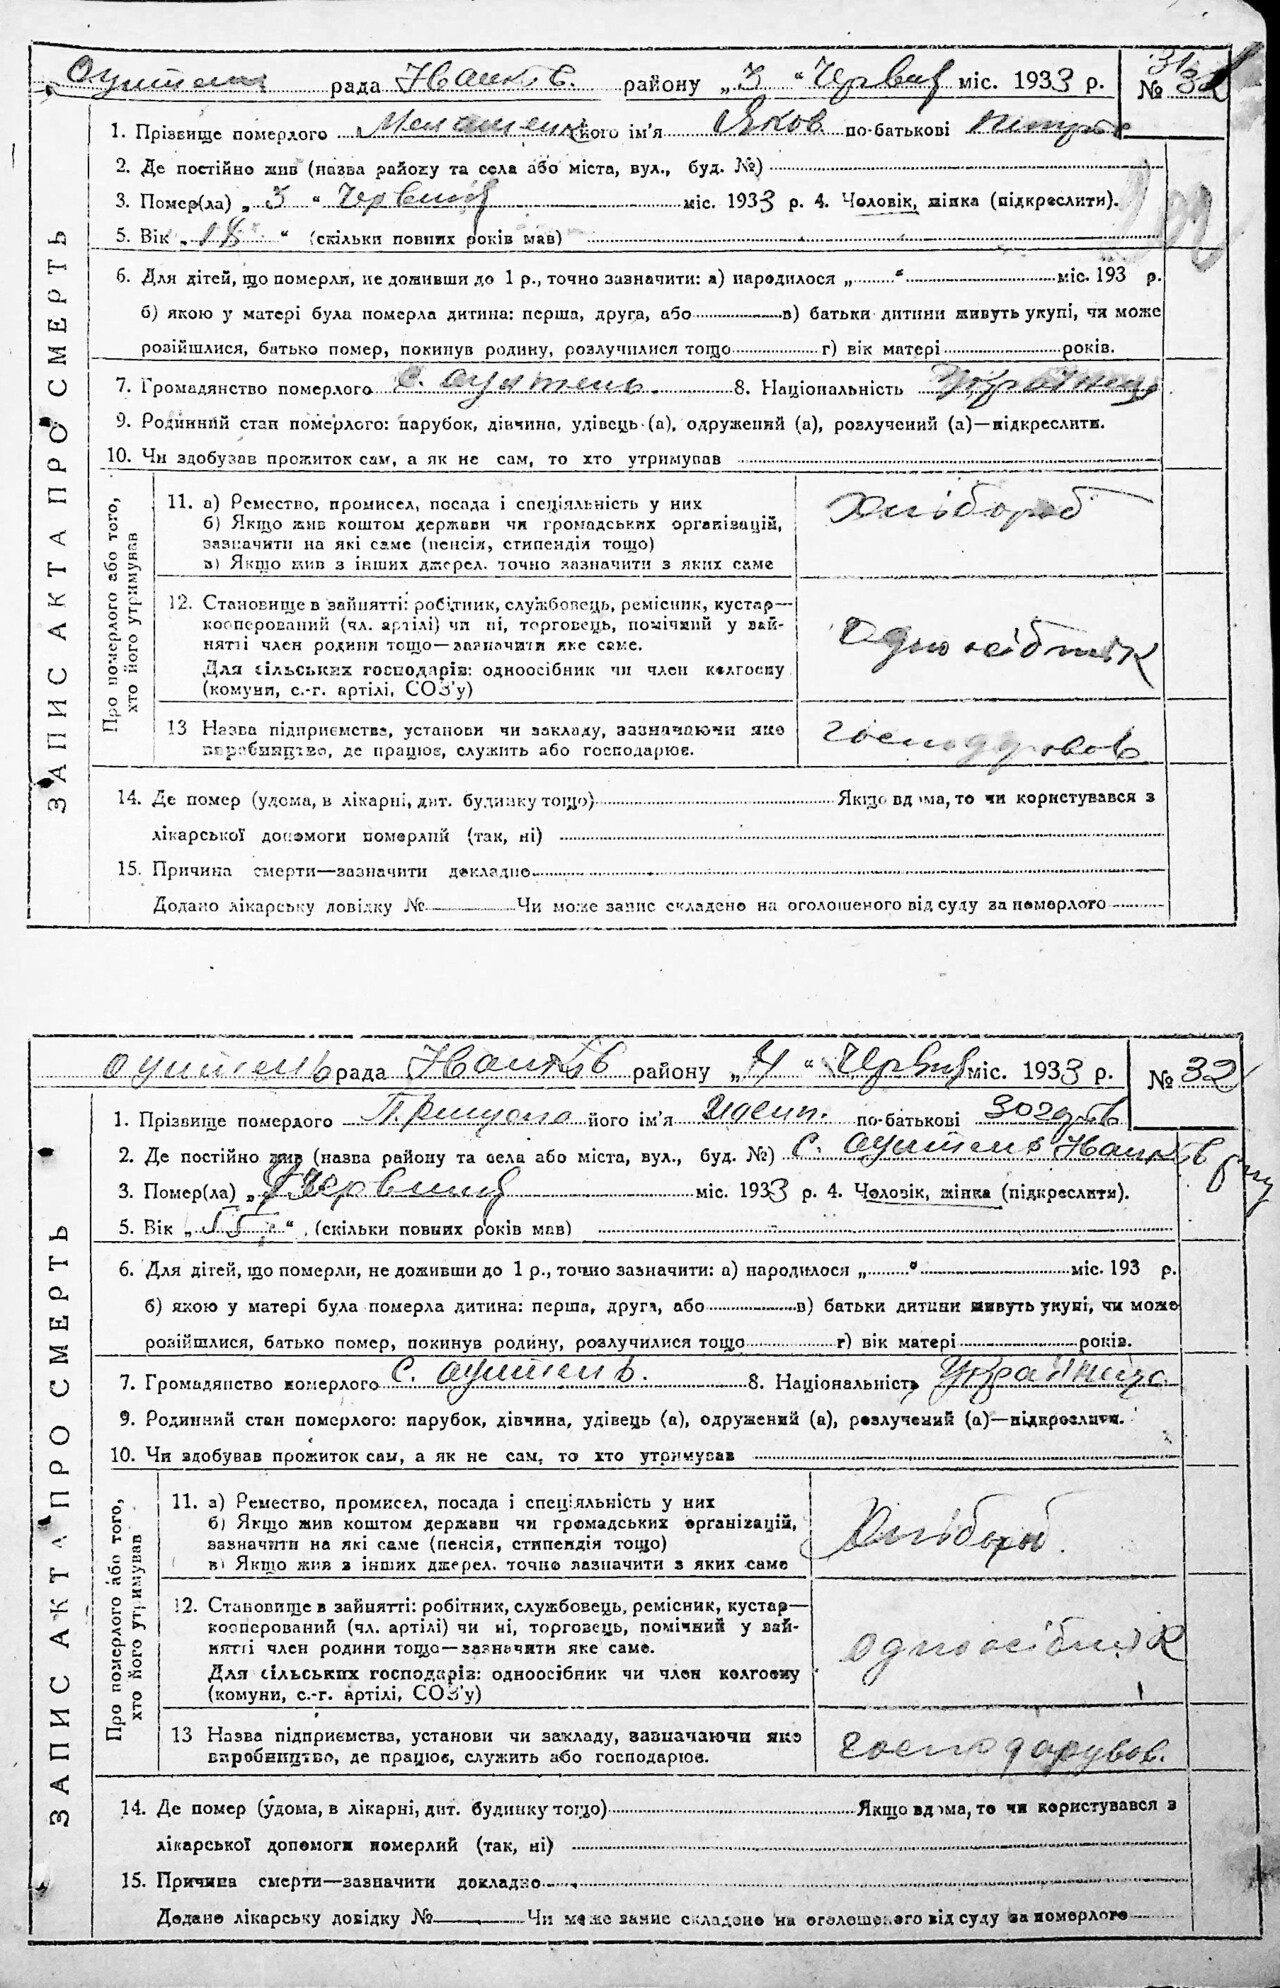 рада Іванків. району „3“ Червня міс. 1933 р. № 31
1. Прізвище померлого його ім'я Яков по-батькові
2. Де постійно жив (назва району та села або міста, вул., буд. №)
3. Помер(ла) „3“ Червня міс. 1933 р. 4. Чоловік, жінка (підкреслити).
5. Вік „18“ (скільки повних років мав)
6. Для дітей, що померли, не доживши до 1 р., точно зазначити: а) народилося „ “ міс. 193 р.
б) якою у матері була померла дитина: перша, друга, або в) батьки дитини живуть укупі, чи може
розійшлися, батько помер, покинув родину, розлучилися тощо г) вік матері років.
7. Громадянство померлого с. 8. Національність Українець
9. Родинний стан померлого: парубок, дівчина, удівець (а), одружений (а), розлучений (а)—підкреслити.
10. Чи здобував прожиток сам, а як не сам, то хто утримував
ЗАПИС АКТА ПРО СМЕРТЬ
Про померлого або того,
хто його утримував
11. а) Ремество, промисел, посада і спеціяльність у них
б) Якщо жив коштом держави чи громадських організацій,
зазначити на які саме (пенсія, стипендія тощо)
в) Якщо жив з інших джерел, точно зазначити з яких саме
Хлібороб
12. Становище в зайнятті: робітник, службовець, ремісник, кустар—
кооперований (чл. артілі) чи ні, торговець, помічний у зай-
нятті член родини тощо—зазначити яке саме.
Для сільських господарів: одноосібник чи член колгоспу
(комуни, с.-г. артілі, СОЗ'у)
Одноосібник
13 Назва підприємства, установи чи закладу, зазначаючи яке
виробництво, де працює, служить або господарює.
14. Де помер (удома, в лікарні, дит. будинку тощо) Якщо вдома, то чи користувався з
лікарської допомоги померлий (так, ні)
15. Причина смерти—зазначити докладно
Додано лікарську довідку № Чи може запис складено на оголошеного від суду за померлого
рада Іванків району „4“ Червня міс. 1933 р. № 32
1. Прізвище померлого його ім'я по-батькові
2. Де постійно жив (назва району та села або міста, вул., буд. №) с.
3. Помер(ла) „ Червня міс. 1933 р. 4. Чоловік, жінка (підкреслити).
5. Вік „55“ (скільки повних років мав)
6. Для дітей, що померли, не доживши до 1 р., точно зазначити: а) народилося „ “ міс. 193 р.
б) якою у матері була померла дитина: перша, друга, або в) батьки дитини живуть укупі, чи може
розійшлися, батько помер, покинув родину, розлучилися тощо г) вік матері років.
7. Громадянство померлого с. 8. Національність Українець
9. Родинний стан померлого: парубок, дівчина, удівець (а), одружений (а), розлучений (а)—підкреслити.
10. Чи здобував прожиток сам, а як не сам, то хто утримував
ЗАПИС АКТА ПРО СМЕРТЬ
Про померлого або того,
хто його утримував
11. а) Ремество, промисел, посада і спеціяльність у них
б) Якщо жив коштом держави чи громадських організацій,
зазначити на які саме (пенсія, стипендія тощо)
в) Якщо жив з інших джерел, точно зазначити з яких саме
Хлібороб
12. Становище в зайнятті: робітник, службовець, ремісник, кустар—
кооперований (чл. артілі) чи ні, торговець, помічний у зай-
нятті член родини тощо—зазначити яке саме.
Для сільських господарів: одноосібник чи член колгоспу
(комуни, с.-г. артілі, СОЗ'у)
одноосібник
13 Назва підприємства, установи чи закладу, зазначаючи яке
виробництво, де працює, служить або господарює.
господарував.
14. Де помер (удома, в лікарні, дит. будинку тощо) Якщо вдома, то чи користувався з
лікарської допомоги померлий (так, ні)
15. Причина смерти—зазначити докладно
Додано лікарську довідку № Чи може запис складено на оголошеного від суду за померлого